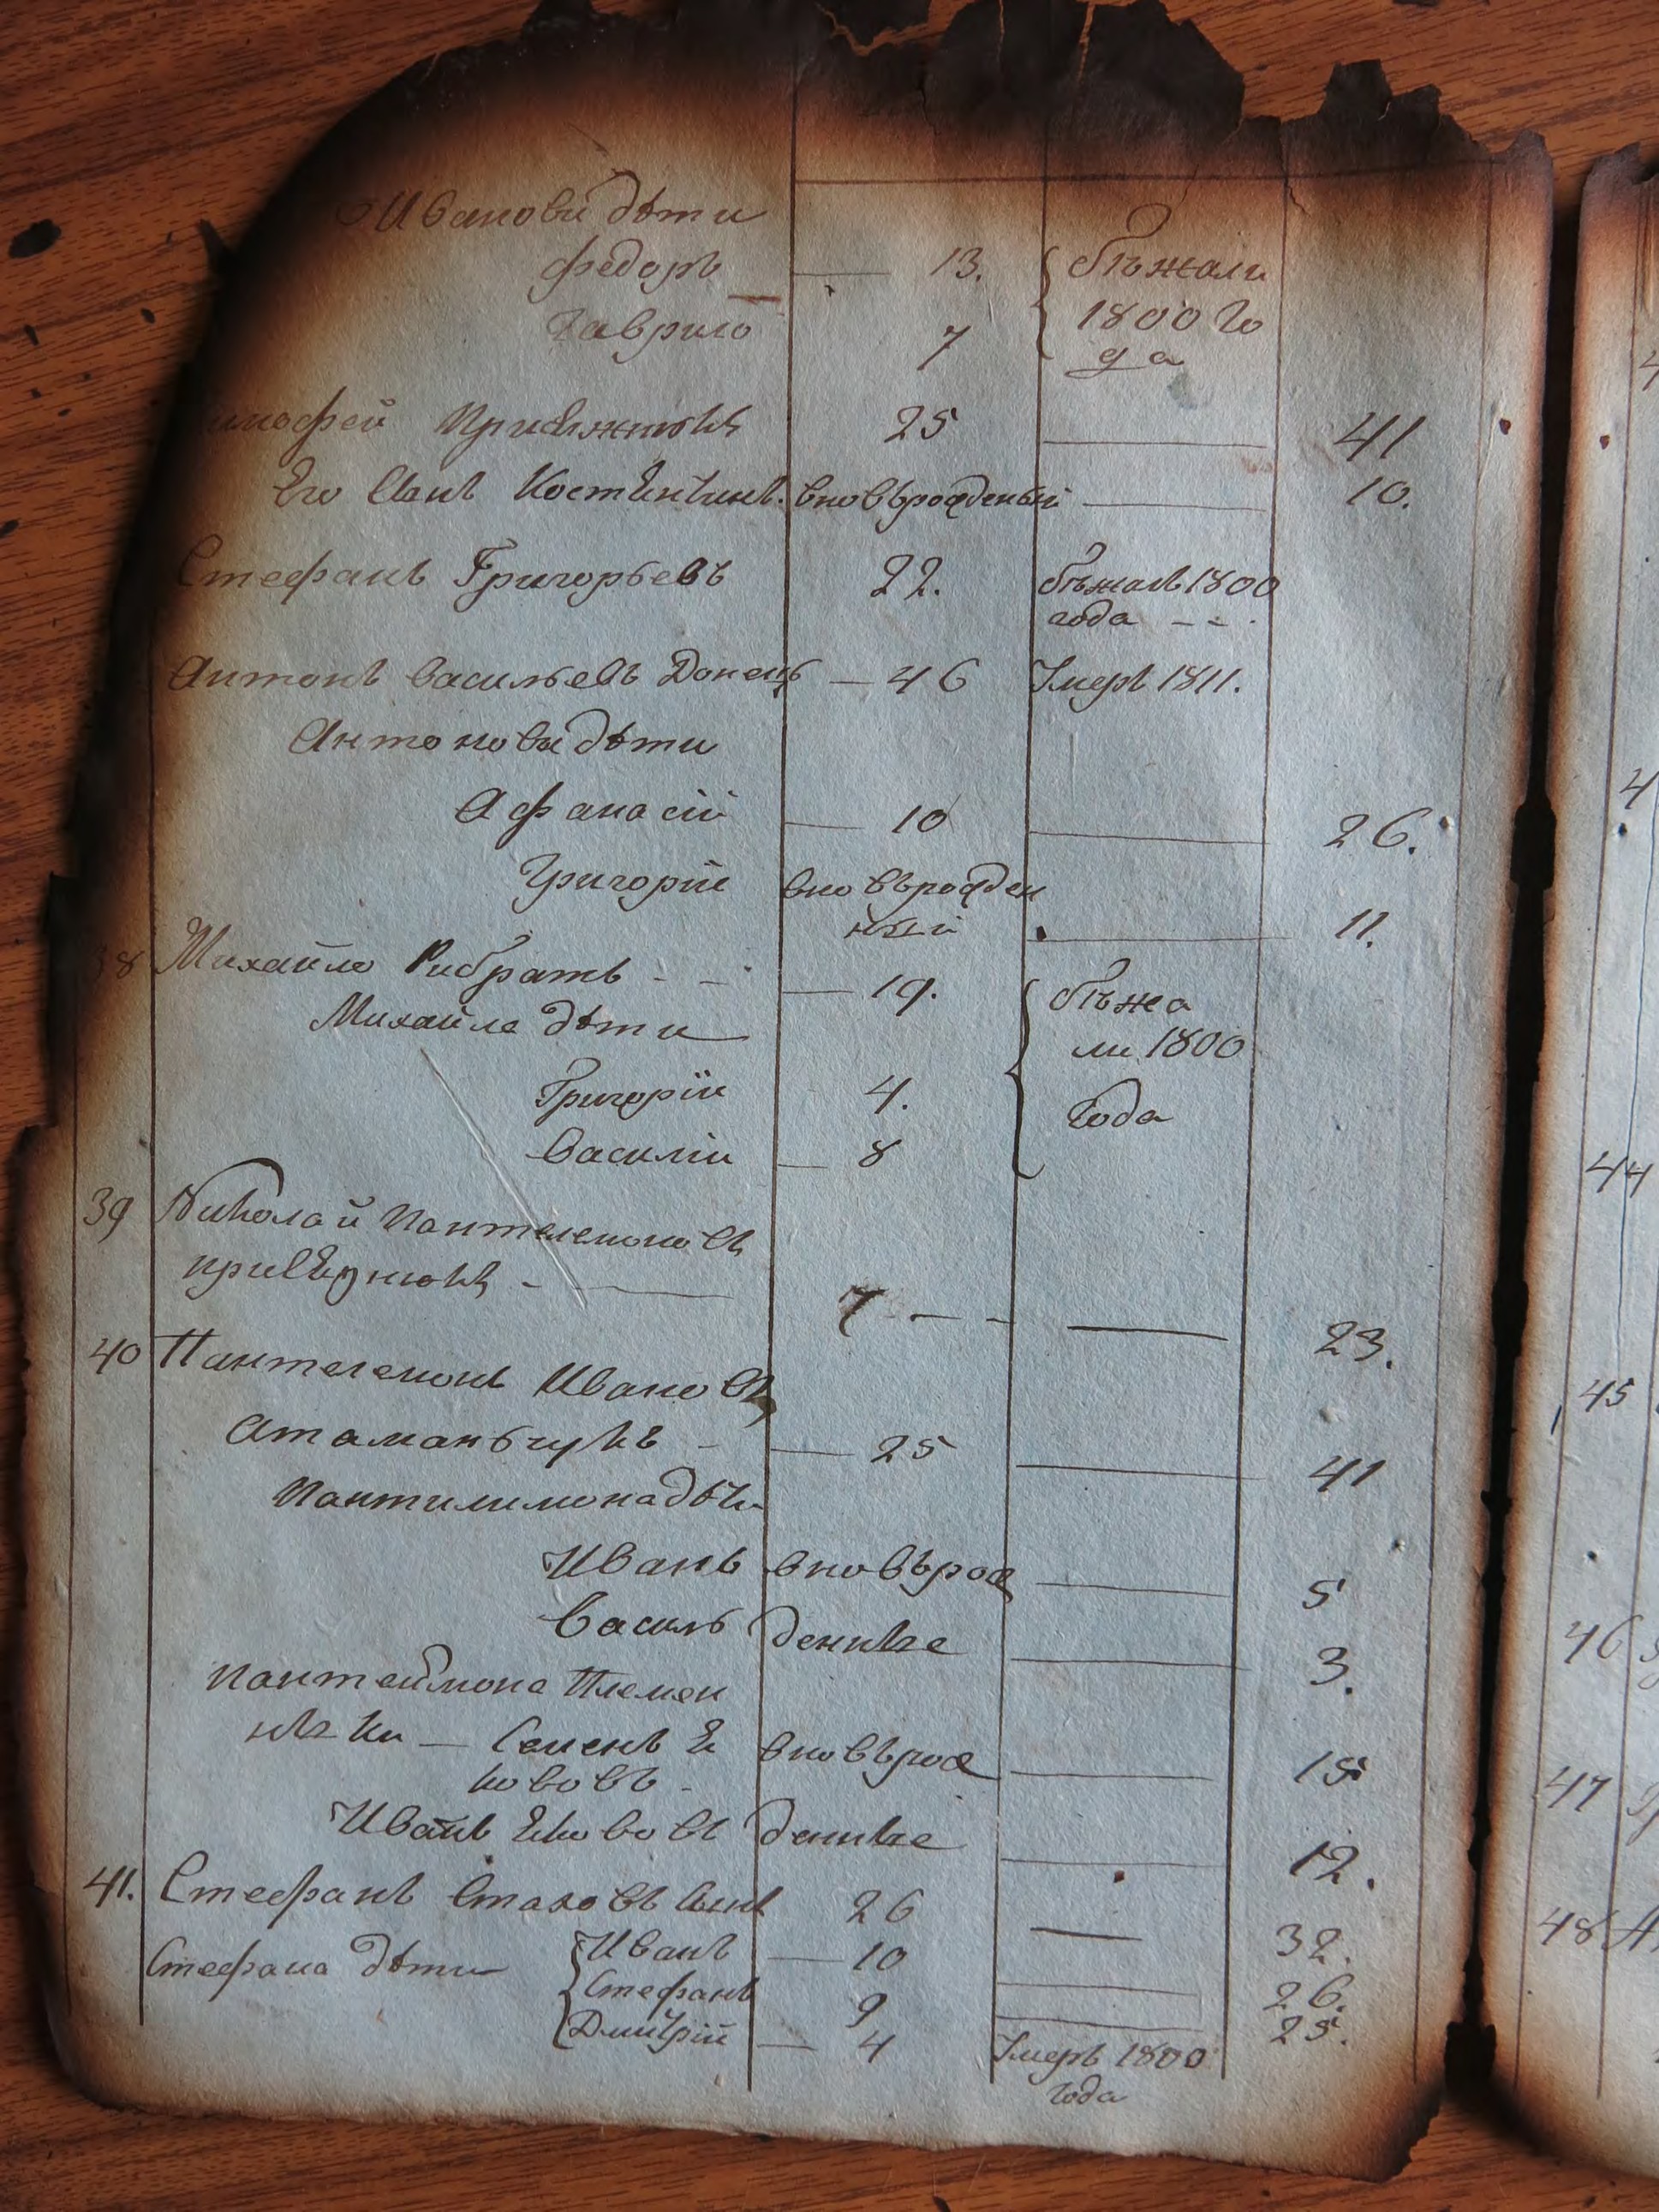 Ивановы дѣти
Федоръ — 13. бѣжали
Гаврило 7 1800 го
да
имофей 25 — 41
Его Сынъ Костентинъ. вновьрожденый — 10.
Стефанъ Григорьевъ 22. бѣжалъ 1800
года - - .
Антонъ Васильевъ Донецъ — 46 Умеръ 1811.
Антоновы дѣти
Афанасій — 10 — 26.
Григорій вновьрожден
ный — 11.
38 Михайло Рибратъ - - — 19. бѣжа
Михайла дѣти ли 1800
Григорій 4. года
Василій — 8
39 Николай Пантелемоновъ
7 - - — 23.
40 Пантелемонъ Ивановъ
Атаманчукъ - — 25 — 41
Пантилимона дѣти
Иванъ вновьрож — 5
Василь денные — 3.
Пантелимона Племен
ники — Семенъ Я вновьрож — 15
кововъ -
Иванъ Якововъ денные — 12.
41. Стефанъ Стаховъ Сынъ 26 — 32.
Стефана дѣти Иванъ — 10 — 26.
Стефанъ 9 — 25.
Дмитрій — 4 Умеръ 1800
года
4
4
44
45
46
47
48